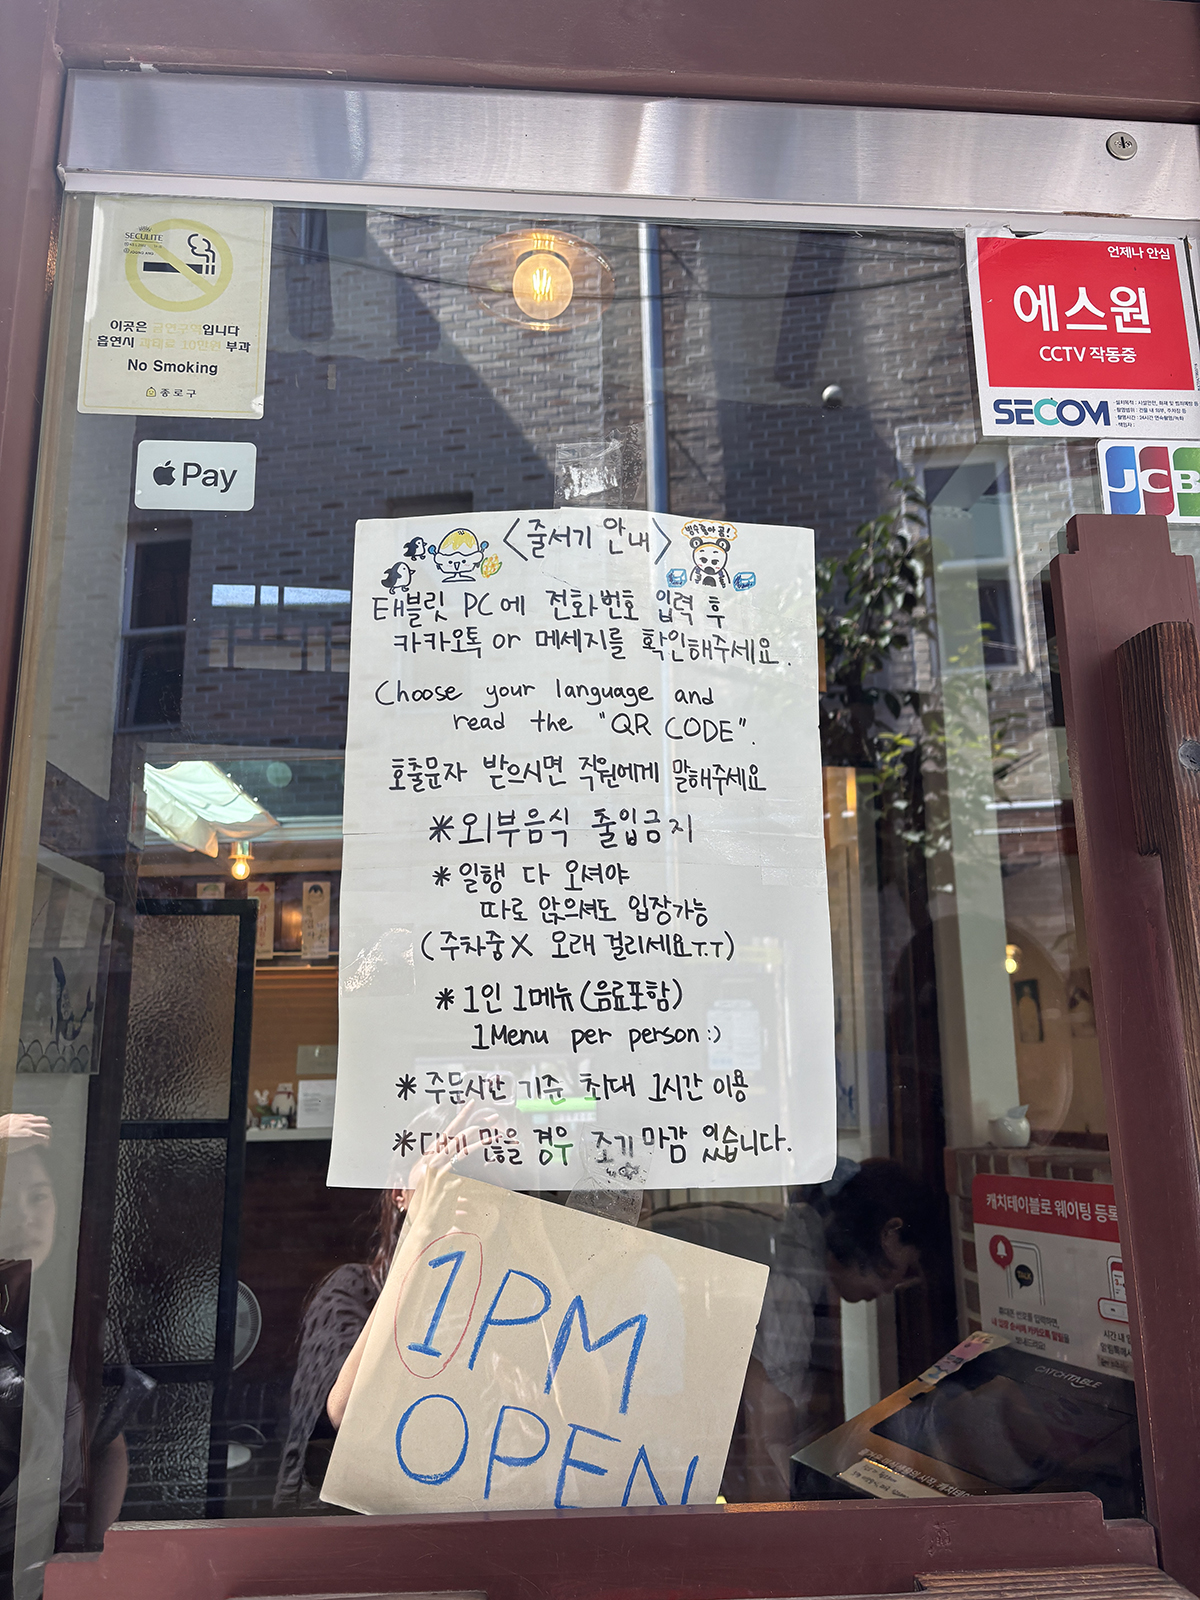 SECULITE
이곳은 금연구역입니다
흡연시 과태료 10만원 부과
No Smoking
종로구
Pay
언제나 안심
에스원
CCTV 작동중
SECOM
JCB
<줄서기 안내>
빙수좋아 곰!
태블릿 PC에 전화번호 입력 후
카카오톡 or 메세지를 확인해주세요.
Choose your language and
read the "QR CODE".
호출문자 받으시면 직원에게 말해주세요
*외부음식 출입금지
* 일행 다 오셔야
따로 앉으셔도 입장가능
(주차중X 오래 걸리세요T.T)
* 1인 1메뉴 (음료포함)
1Menu per person:)
* 주문시간 기준 최대 1시간 이용
*대기 많을 경우 조기 마감 있습니다.
1PM
OPEN
캐치테이블로 웨이팅 등록
TALK
휴대폰 번호를 입력하면,
내 입장 순서에 카카오톡 알림을
CATCHTABLE